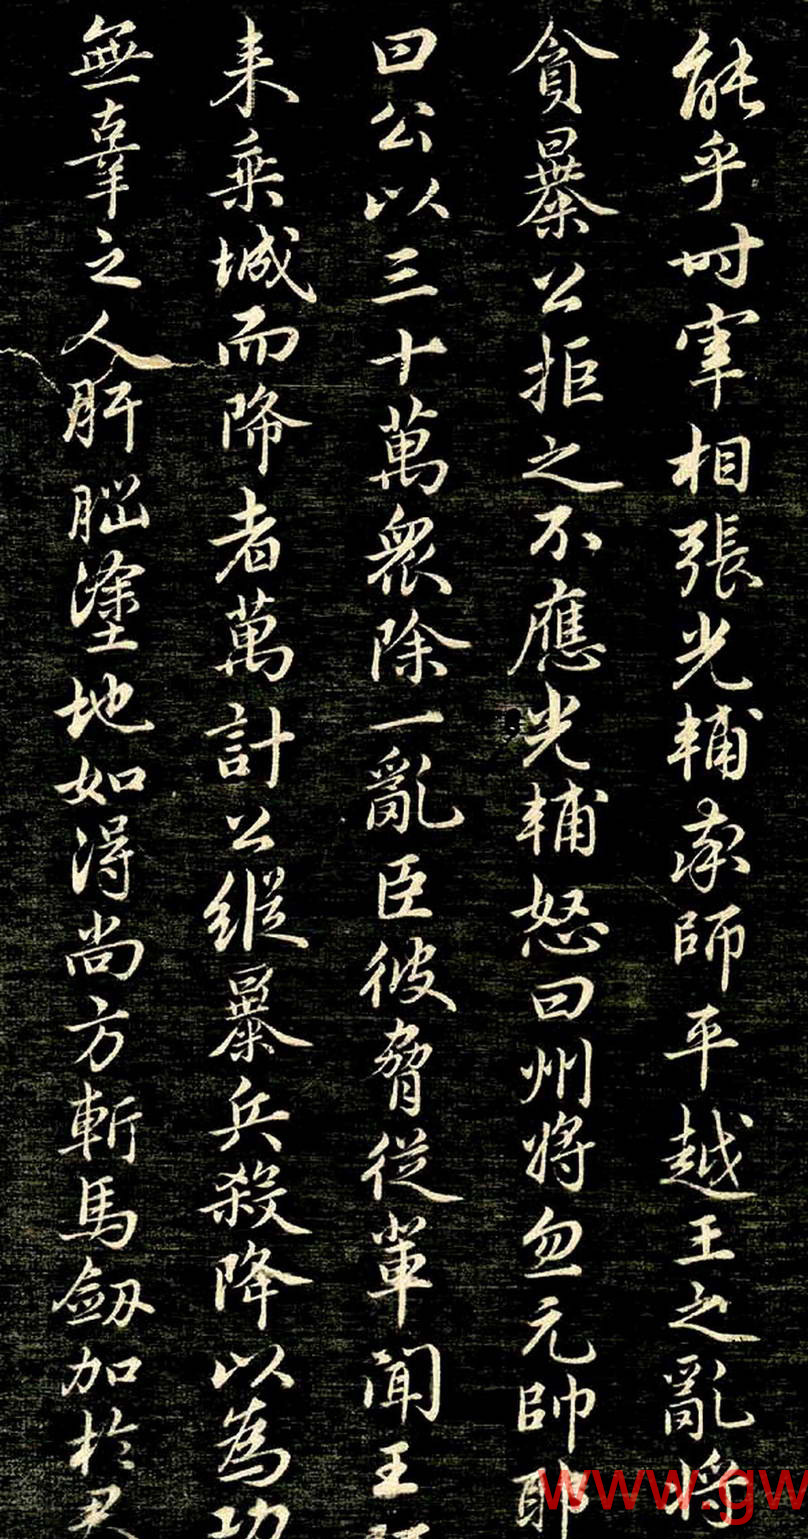 能乎时宰相張光輔率師平越王之亂将
貪暴公拒之不應光輔怒曰州将忽元帥耶
曰公以三十萬衆除一亂臣彼脅從輩聞王
来乗城而降者萬計公縱暴兵殺降以為功
無辜之人肝腦塗地如得尚方斬馬劔加於君
www.gw